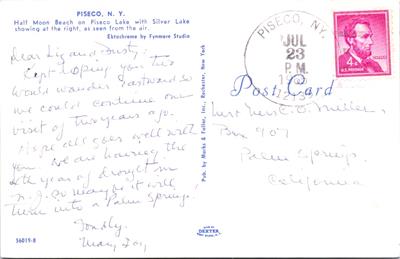 PISECO, N. Y.
Half Moon Beach on Piseco Lake with Silver Lake
showing at the right, as seen from the air.
Ektachrome by Fynmore Studio
Dear Liz and Dusty:
Kept hoping you two
would wander Eastward so
we could continue our
visit of two years ago.
Hope all goes well with
you. We are having the
4th year of drought in
N.J. so maybe it will
turn into a Palm Springs!
Fondly,
Mary Joy
56019-B
Pub. by Manks & Fuller, Inc., Rochester, New York
DEXTER
PISECO, N.Y.
JUL
23
P.M.
4¢
U.S. POSTAGE
Post Card
Miller
Box 907
Palm Springs
California